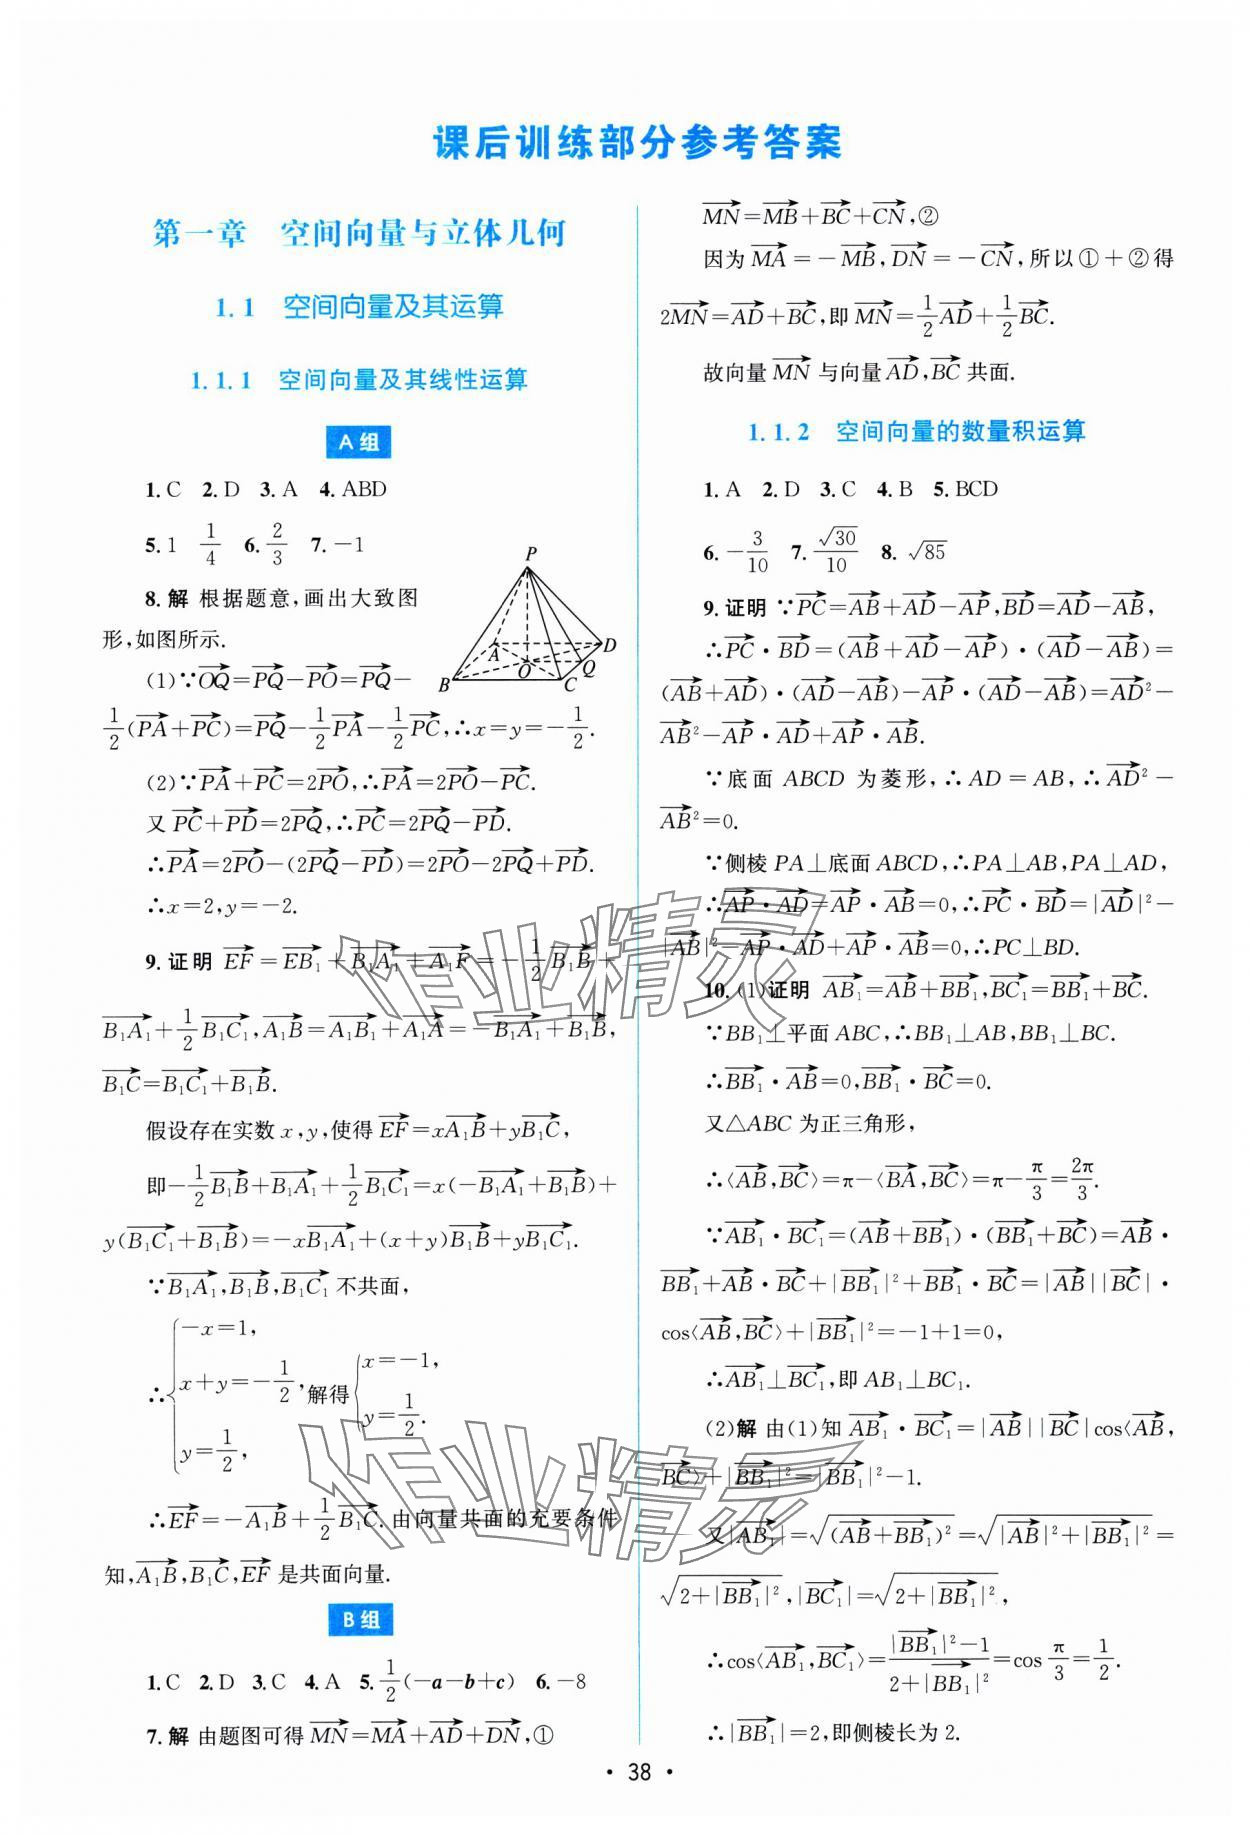 课后训练部分参考答案
第一章 空间向量与立体几何
1.1 空间向量及其运算
1.1.1 空间向量及其线性运算
A组
1.C 2.D 3.A 4.ABD
5.1 $\frac{1}{4}$ 6.$\frac{2}{3}$ 7.-1
8.解 根据题意,画出大致图
形,如图所示.
P
A
B
C
D
O
Q
(1)∵$\overrightarrow{OQ}=\overrightarrow{PQ}-\overrightarrow{PO}=\overrightarrow{PQ}-$
$\frac{1}{2}(\overrightarrow{PA}+\overrightarrow{PC})=\overrightarrow{PQ}-\frac{1}{2}\overrightarrow{PA}-\frac{1}{2}\overrightarrow{PC}$,∴$x=y=-\frac{1}{2}$.
(2)∵$\overrightarrow{PA}+\overrightarrow{PC}=2\overrightarrow{PO}$,∴$\overrightarrow{PA}=2\overrightarrow{PO}-\overrightarrow{PC}$.
又$\overrightarrow{PC}+\overrightarrow{PD}=2\overrightarrow{PQ}$,∴$\overrightarrow{PC}=2\overrightarrow{PQ}-\overrightarrow{PD}$.
∴$\overrightarrow{PA}=2\overrightarrow{PO}-(2\overrightarrow{PQ}-\overrightarrow{PD})=2\overrightarrow{PO}-2\overrightarrow{PQ}+\overrightarrow{PD}$.
∴$x=2,y=-2$.
9.证明 $\overrightarrow{EF}=\overrightarrow{EB_1}+\overrightarrow{B_1A_1}+\overrightarrow{A_1F}=-\frac{1}{2}\overrightarrow{B_1B}+$
$\overrightarrow{B_1A_1}+\frac{1}{2}\overrightarrow{B_1C_1},\overrightarrow{A_1B}=\overrightarrow{A_1B_1}+\overrightarrow{A_1A}=-\overrightarrow{B_1A_1}+\overrightarrow{B_1B}$,
$\overrightarrow{B_1C}=\overrightarrow{B_1C_1}+\overrightarrow{B_1B}$.
假设存在实数$x,y$,使得$\overrightarrow{EF}=x\overrightarrow{A_1B}+y\overrightarrow{B_1C}$,
即$-\frac{1}{2}\overrightarrow{B_1B}+\overrightarrow{B_1A_1}+\frac{1}{2}\overrightarrow{B_1C_1}=x(-\overrightarrow{B_1A_1}+\overrightarrow{B_1B})+$
$y(\overrightarrow{B_1C_1}+\overrightarrow{B_1B})=-x\overrightarrow{B_1A_1}+(x+y)\overrightarrow{B_1B}+y\overrightarrow{B_1C_1}$.
∵$\overrightarrow{B_1A_1},\overrightarrow{B_1B},\overrightarrow{B_1C_1}$不共面,
∴$\begin{cases}-x=1,\\x+y=-\frac{1}{2},\\y=\frac{1}{2},\end{cases}$解得$\begin{cases}x=-1,\\y=\frac{1}{2}.\end{cases}$
∴$\overrightarrow{EF}=-\overrightarrow{A_1B}+\frac{1}{2}\overrightarrow{B_1C}$.由向量共面的充要条件
知,$\overrightarrow{A_1B},\overrightarrow{B_1C},\overrightarrow{EF}$是共面向量.
B组
1.C 2.D 3.C 4.A 5.$\frac{1}{2}(-a-b+c)$ 6.-8
7.解 由题图可得$\overrightarrow{MN}=\overrightarrow{MA}+\overrightarrow{AD}+\overrightarrow{DN}$,①
$\overrightarrow{MN}=\overrightarrow{MB}+\overrightarrow{BC}+\overrightarrow{CN}$,②
因为$\overrightarrow{MA}=-\overrightarrow{MB},\overrightarrow{DN}=-\overrightarrow{CN}$,所以①+②得
$2\overrightarrow{MN}=\overrightarrow{AD}+\overrightarrow{BC}$,即$\overrightarrow{MN}=\frac{1}{2}\overrightarrow{AD}+\frac{1}{2}\overrightarrow{BC}$.
故向量$\overrightarrow{MN}$与向量$\overrightarrow{AD},\overrightarrow{BC}$共面.
1.1.2 空间向量的数量积运算
1.A 2.D 3.C 4.B 5.BCD
6.$-\frac{3}{10}$ 7.$\frac{\sqrt{30}}{10}$ 8.$\sqrt{85}$
9.证明 ∵$\overrightarrow{PC}=\overrightarrow{AB}+\overrightarrow{AD}-\overrightarrow{AP},\overrightarrow{BD}=\overrightarrow{AD}-\overrightarrow{AB}$,
∴$\overrightarrow{PC}·\overrightarrow{BD}=(\overrightarrow{AB}+\overrightarrow{AD}-\overrightarrow{AP})·(\overrightarrow{AD}-\overrightarrow{AB})=$
$(\overrightarrow{AB}+\overrightarrow{AD})·(\overrightarrow{AD}-\overrightarrow{AB})-\overrightarrow{AP}·(\overrightarrow{AD}-\overrightarrow{AB})=\overrightarrow{AD}^2-$
$\overrightarrow{AB}^2-\overrightarrow{AP}·\overrightarrow{AD}+\overrightarrow{AP}·\overrightarrow{AB}$.
∵底面ABCD为菱形,∴AD=AB,∴$\overrightarrow{AD}^2-$
$\overrightarrow{AB}^2=0$.
∵侧棱PA⊥底面ABCD,∴PA⊥AB,PA⊥AD,
∴$\overrightarrow{AP}·\overrightarrow{AD}=\overrightarrow{AP}·\overrightarrow{AB}=0$,∴$\overrightarrow{PC}·\overrightarrow{BD}=|\overrightarrow{AD}|^2-$
$|\overrightarrow{AB}|^2-\overrightarrow{AP}·\overrightarrow{AD}+\overrightarrow{AP}·\overrightarrow{AB}=0$,∴PC⊥BD.
10.(1)证明 $\overrightarrow{AB_1}=\overrightarrow{AB}+\overrightarrow{BB_1},\overrightarrow{BC_1}=\overrightarrow{BB_1}+\overrightarrow{BC}$.
∵$BB_1$⊥平面ABC,∴$BB_1$⊥AB,$BB_1$⊥BC.
∴$\overrightarrow{BB_1}·\overrightarrow{AB}=0,\overrightarrow{BB_1}·\overrightarrow{BC}=0$.
又△ABC为正三角形,
∴$\langle\overrightarrow{AB},\overrightarrow{BC}\rangle=π-\langle\overrightarrow{BA},\overrightarrow{BC}\rangle=π-\frac{π}{3}=\frac{2π}{3}$.
∵$\overrightarrow{AB_1}·\overrightarrow{BC_1}=(\overrightarrow{AB}+\overrightarrow{BB_1})·(\overrightarrow{BB_1}+\overrightarrow{BC})=\overrightarrow{AB}·$
$\overrightarrow{BB_1}+\overrightarrow{AB}·\overrightarrow{BC}+|\overrightarrow{BB_1}|^2+\overrightarrow{BB_1}·\overrightarrow{BC}=|\overrightarrow{AB}||\overrightarrow{BC}|·$
$\cos\langle\overrightarrow{AB},\overrightarrow{BC}\rangle+|\overrightarrow{BB_1}|^2=-1+1=0$,
∴$\overrightarrow{AB_1}⊥\overrightarrow{BC_1}$,即$AB_1⊥BC_1$.
(2)解 由(1)知$\overrightarrow{AB_1}·\overrightarrow{BC_1}=|\overrightarrow{AB}||\overrightarrow{BC}|\cos\langle\overrightarrow{AB},$
$\overrightarrow{BC}\rangle+|\overrightarrow{BB_1}|^2=|\overrightarrow{BB_1}|^2-1$.
又$|\overrightarrow{AB_1}|=\sqrt{(\overrightarrow{AB}+\overrightarrow{BB_1})^2}=\sqrt{|\overrightarrow{AB}|^2+|\overrightarrow{BB_1}|^2}=$
$\sqrt{2+|\overrightarrow{BB_1}|^2},|\overrightarrow{BC_1}|=\sqrt{2+|\overrightarrow{BB_1}|^2}$,
∴$\cos\langle\overrightarrow{AB_1},\overrightarrow{BC_1}\rangle=\frac{|\overrightarrow{BB_1}|^2-1}{2+|\overrightarrow{BB_1}|^2}=\cos\frac{π}{3}=\frac{1}{2}$.
∴$|\overrightarrow{BB_1}|=2$,即侧棱长为2.
作业精灵
作业精灵
·38·